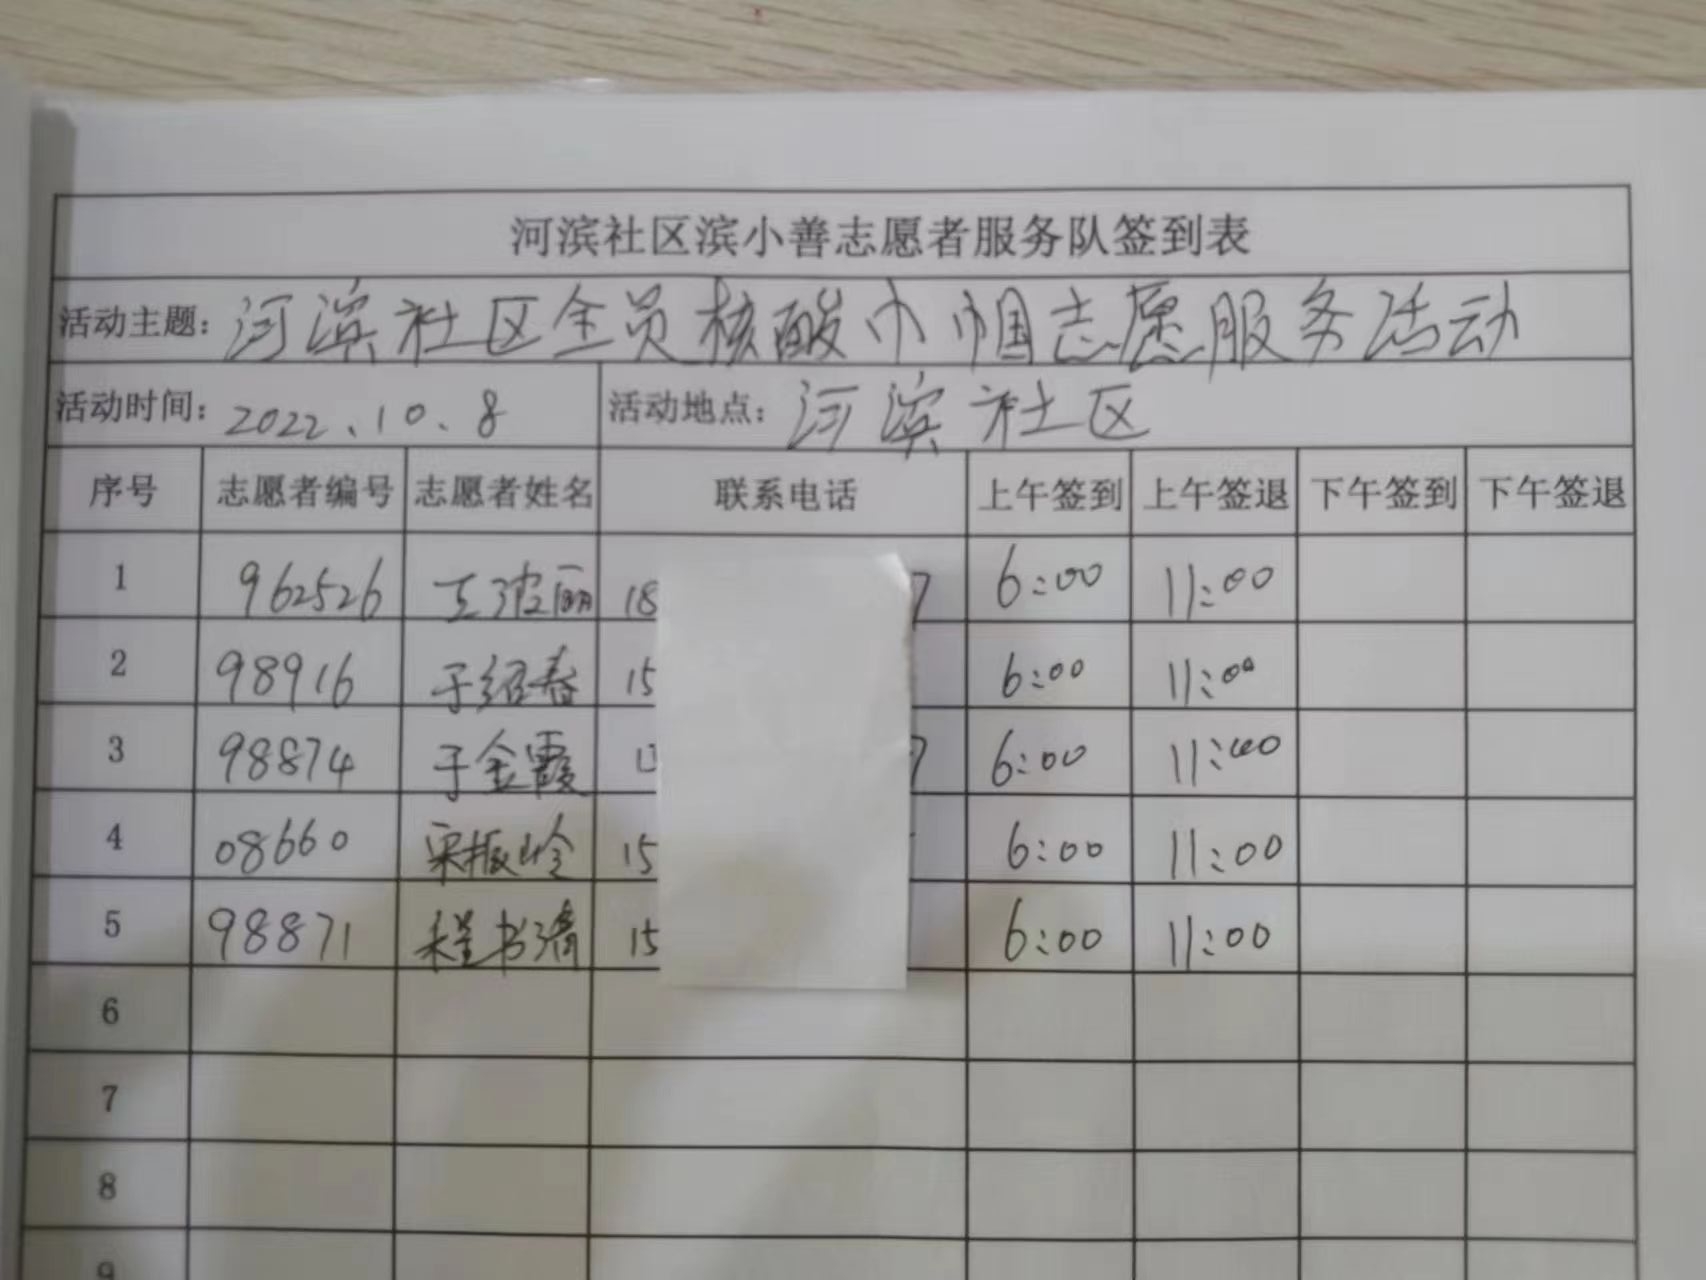 河滨社区滨小善志愿者服务队签到表
活动主题：河滨社区全员核酸巾帼志愿服务活动
活动时间：2022.10.8 活动地点：河滨社区
序号 志愿者编号 志愿者姓名 联系电话 上午签到 上午签退 下午签到 下午签退
1 962526 王波丽 18 7 6:00 11:00
2 98916 于绍春 15 6:00 11:00
3 98874 于金霞 7 6:00 11:00
4 08660 宋振岭 15 6:00 11:00
5 98871 程书清 15 6:00 11:00
6
7
8
9